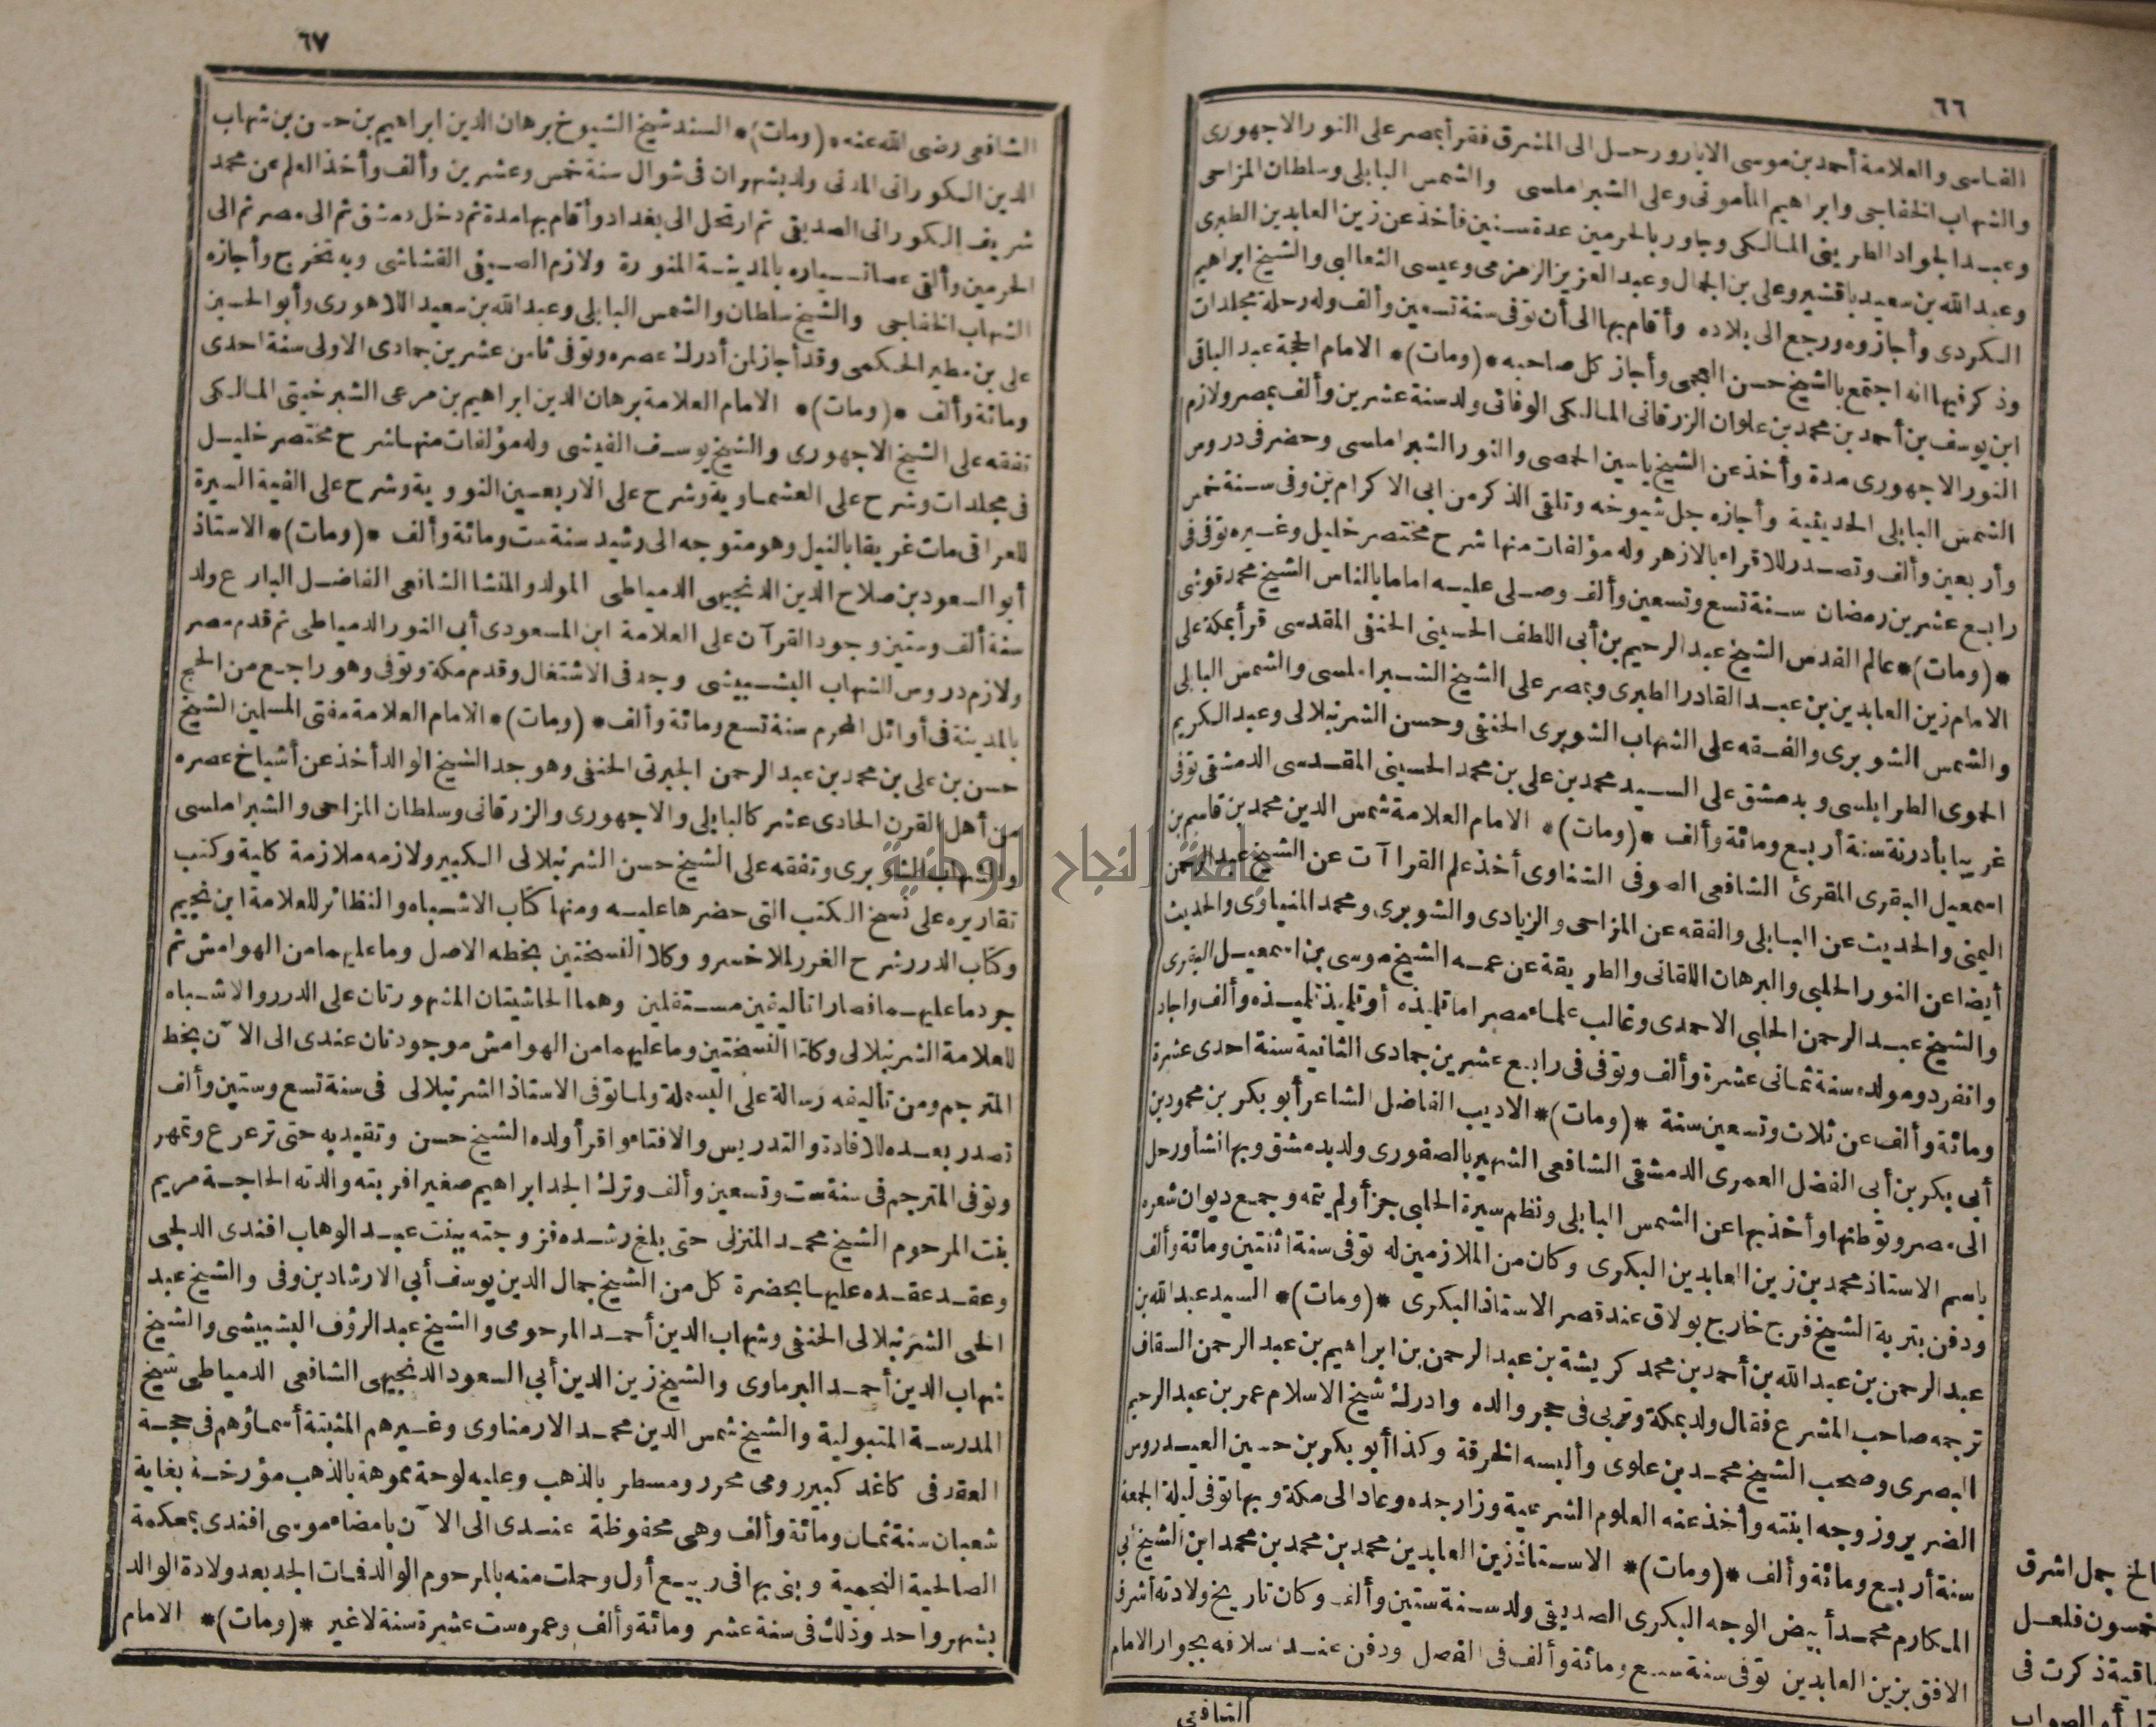 ٦٦
الفاسى والعلامة أحمد بن موسى الابار ورحل الى المشرق فقرأ بمصر على النور الاجهورى
والشهاب الخفاجى وابراهيم المأمونى وعلى الشبراملسى والشمس البابلى وسلطان المزاحى
وعبد الجواد الطرينى المالكى وجاور بالحرمين عدة سنين فأخذ عن زين العابدين الطبرى
وعبد الله بن سعيد باقشير وعلى بن الجمال وعبد العزيز الزمزمى وعيسى الثعالبى والشيخ ابراهيم
الكردى وأجازوه ورجع الى بلاده وأقام بها الى أن توفى سنة تسعين وألف وله رحلة مجلدات
وذكر فيها انه اجتمع بالشيخ حسن العجمى وأجاز كل صاحبه *(ومات)* الامام الحجة عبد الباقى
ابن يوسف بن أحمد بن محمد بن علوان الزرقانى المالكى الوفائى ولد سنة عشرين وألف بمصر ولازم
النور الاجهورى مدة وأخذ عن الشيخ ياسين الحمصى والنور الشبراملسى وحضر فى دروس
الشمس البابلى الحديثية وأجازه جل شيوخه وتلقى الذكر من ابى الاكرام بن وفى سنة خمس
وأربعين وألف وتصدر للاقراء بالازهر وله مؤلفات منها شرح مختصر خليل وغيره توفى فى
رابع عشرين رمضان سنة تسع وتسعين وألف وصلى عليه اماما بالناس الشيخ محمد قوشى
*(ومات)* عالم القدس الشيخ عبد الرحيم بن أبى اللطف الحسينى الحنفى المقدسى قرأ بمكة على
الامام زين العابدين بن عبد القادر الطبرى وبمصر على الشيخ الشبراملسى والشمس البابلى
والشمس الشوبرى والفقه على الشهاب الشوبرى الحنفى وحسن الشرنبلالى وعبد الكريم
الحموى الطرابلسى وبدمشق على السيد محمد بن على بن محمد الحسينى المقدسى الدمشقى توفى
غريبا بأدرنة سنة أربع ومائة وألف *(ومات)* الامام العلامة شمس الدين محمد بن قاسم بن
اسمعيل البقرى المقرئ الشافعى الصوفى الشناوى أخذ علم القراآت عن الشيخ عبد الرحمن
اليمنى والحديث عن البابلى والفقه عن المزاحى والزيادى والشوبرى ومحمد المنياوى والحديث
أيضا عن النور الحلبى والبرهان اللقانى والطريقة عن عمه الشيخ موسى بن اسمعيل البقرى
والشيخ عبد الرحمن الحلبى الاحمدى وغالب علماء مصر اما تلميذه أو تلميذ تلميذه وألف واجاد
وانفرد ومولده سنة ثمانى عشرة وألف وتوفى فى رابع عشرين جمادى الثانية سنة احدى عشرة
ومائة وألف عن ثلاث وتسعين سنة *(ومات)* الاديب الفاضل الشاعر أبو بكر بن محمود بن
أبى بكر بن أبى الفضل العمرى الدمشقى الشافعى الشهير بالصفورى ولد بدمشق وبها نشأ ورحل
الى مصر وتوطنها وأخذ بها عن الشمس البابلى ونظم سيرة الحلبى جزأ ولم يتمه وجمع ديوان شعره
باسم الاستاذ محمد بن زين العابدين البكرى وكان من الملازمين له توفى سنة اثنتين ومائة وألف
ودفن بتربة الشيخ فرج خارج بولاق عند قصر الاستاذ البكرى *(ومات)* السيد عبد الله بن
عبد الرحمن بن عبد الله بن أحمد بن محمد كريشة بن عبد الرحمن بن ابراهيم بن عبد الرحمن السقاف
ترجمه صاحب المشرع فقال ولد بمكة وتربى فى حجر والده وادرك شيخ الاسلام عمر بن عبد الرحيم
البصرى وصحب الشيخ محمد بن علوى وألبسه الخرقة وكذا أبو بكر بن حسين العيدروس
الضرير وزوجه ابنته وأخذ عنه العلوم الشرعية وزار جده وعاد الى مكة وبها توفى ليلة الجمعة
سنة أربع ومائة وألف *(ومات)* الاستاذ زين العابدين محمد بن محمد بن محمد ابن الشيخ أبى
المكارم محمد أبيض الوجه البكرى الصديقى ولد سنة ستين وألف وكان تاريخ ولادته أشرق
الافق بزين العابدين توفى سنة سبع ومائة وألف فى الفصل ودفن عند اسلافه بجوار الامام
الشافعى
الخ جمل اشرق
خمسون فلعل
باقية ذكرت فى
٦٧
الشافعى رضى الله عنه *(ومات)* السند شيخ الشيوخ برهان الدين ابراهيم بن حسن بن شهاب
الدين الكورانى المدنى ولد بشهران فى شوال سنة خمس وعشرين وألف وأخذ العلم عن محمد
شريف الكورانى الصديقى ثم ارتحل الى بغداد وأقام بها مدة ثم دخل دمشق ثم الى مصر ثم الى
الحرمين وألقى عصا تسياره بالمدينة المنورة ولازم الصفى القشاشى وبه تخرج وأجازه
الشهاب الخفاجى والشيخ سلطان والشمس البابلى وعبد الله بن سعيد اللاهورى وأبو الحسن
على بن مطير الحكمى وقد أجاز لمن أدرك عصره وتوفى ثامن عشرين جمادى الاولى سنة احدى
ومائة وألف *(ومات)* الامام العلامة برهان الدين ابراهيم بن مرعى الشبرخيتى المالكى
تفقه على الشيخ الاجهورى والشيخ يوسف الفيشى وله مؤلفات منها شرح مختصر خليل
فى مجلدات وشرح على العشماوية وشرح على الاربعين النووية وشرح على الفية السيرة
للعراقى مات غريقا بالنيل وهو متوجه الى رشيد سنة ست ومائة وألف *(ومات)* الاستاذ
أبو السعود بن صلاح الدين الدنجيهى الدمياطى المولد والمنشا الشافعى الفاضل البارع ولد
سنة ألف وستين وجود القرآن على العلامة ابن المسعودى أبى النور الدمياطى ثم قدم مصر
ولازم دروس الشهاب البشبيشى وجد فى الاشتغال وقدم مكة وتوفى وهو راجع من الحج
بالمدينة فى أوائل المحرم سنة تسع ومائة وألف *(ومات)* الامام العلامة مفتى المسلمين الشيخ
حسن بن على بن محمد بن عبد الرحمن الجبرتى الحنفى وهو جد الشيخ الوالد أخذ عن أشياخ عصره
من أهل القرن الحادى عشر كالبابلى والاجهورى والزرقانى وسلطان المزاحى والشبراملسى
والشهاب الشوبرى وتفقه على الشيخ حسن الشرنبلالى الكبير ولازمه ملازمة كلية وكتب
تقاريره على نسخ الكتب التى حضرها عليه ومنها كتاب الاشباه والنظائر للعلامة ابن نجيم
وكتاب الدرر شرح الغرر لملا خسرو وكلا النسختين بخطه الاصل وما عليهما من الهوامش ثم
جرد ما عليهما فصارا تأليفين مستقلين وهما الحاشيتان المشهورتان على الدرر والاشباه
للعلامة الشرنبلالى وكلتا النسختين وما عليهما من الهوامش موجودتان عندى الى الآن بخط
المترجم ومن تأليفه رسالة على البسملة ولما توفى الاستاذ الشرنبلالى فى سنة تسع وستين وألف
تصدر بعده للافادة والتدريس والافتاء واقرأ ولده الشيخ حسن وتقيد به حتى ترعرع وتمهر
وتوفى المترجم فى سنة ست وتسعين وألف وترك الجد ابراهيم صغيرا فربته والدته الحاجة مريم
بنت المرحوم الشيخ محمد المنزلى حتى بلغ رشده فزوجته ببنت عبد الوهاب افندى الدلجى
وعقد عقده عليها بحضرة كل من الشيخ جمال الدين يوسف أبى الارشاد بن وفى والشيخ عبد
الحى الشرنبلالى الحنفى وشهاب الدين أحمد المرحومى والشيخ عبد الرؤف البشبيشى والشيخ
شهاب الدين أحمد البرماوى والشيخ زين الدين أبى السعود الدنجيهى الشافعى الدمياطى شيخ
المدرسة المتبولية والشيخ شمس الدين محمد الارمناوى وغيرهم المثبتة أسماؤهم فى حجة
العقد فى كاغد كبير رومى محرر ومسطر بالذهب وعليه لوحة مموهة بالذهب مؤرخة بغاية
شعبان سنة ثمان ومائة وألف وهى محفوظة عندى الى الآن بامضاء موسى افندى بمحكمة
الصالحية النجمية وبنى بها فى ربيع أول وحملت منه بالمرحوم الوالد فمات الجد بعد ولادة الوالد
بشهر واحد وذلك فى سنة عشر ومائة وألف وعمره ست عشرة سنة لا غير *(ومات)* الامام
جامعة النجاح الوطنية